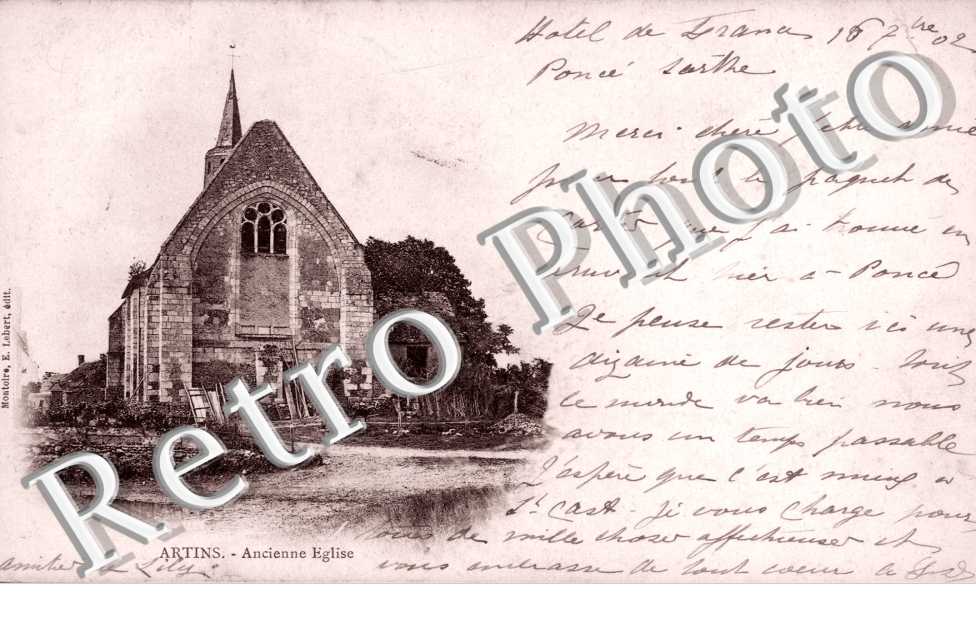 Hotel de France 16 7bre 02
Poncé Sarthe
Merci chère
paquet de
j'ai trouvé en
hier à Poncé
Je pense rester ici une
dizaine de jours. Tout
le monde va bien nous
avons un temps passable
J'espère que c'est mieux à
St Cast. Je vous charge pour
tous de mille choses affectueuses et
vous embrasse de tout coeur
Lily.
ARTINS. - Ancienne Eglise
Montoire, E. Lebert, édit.
Retro Photo